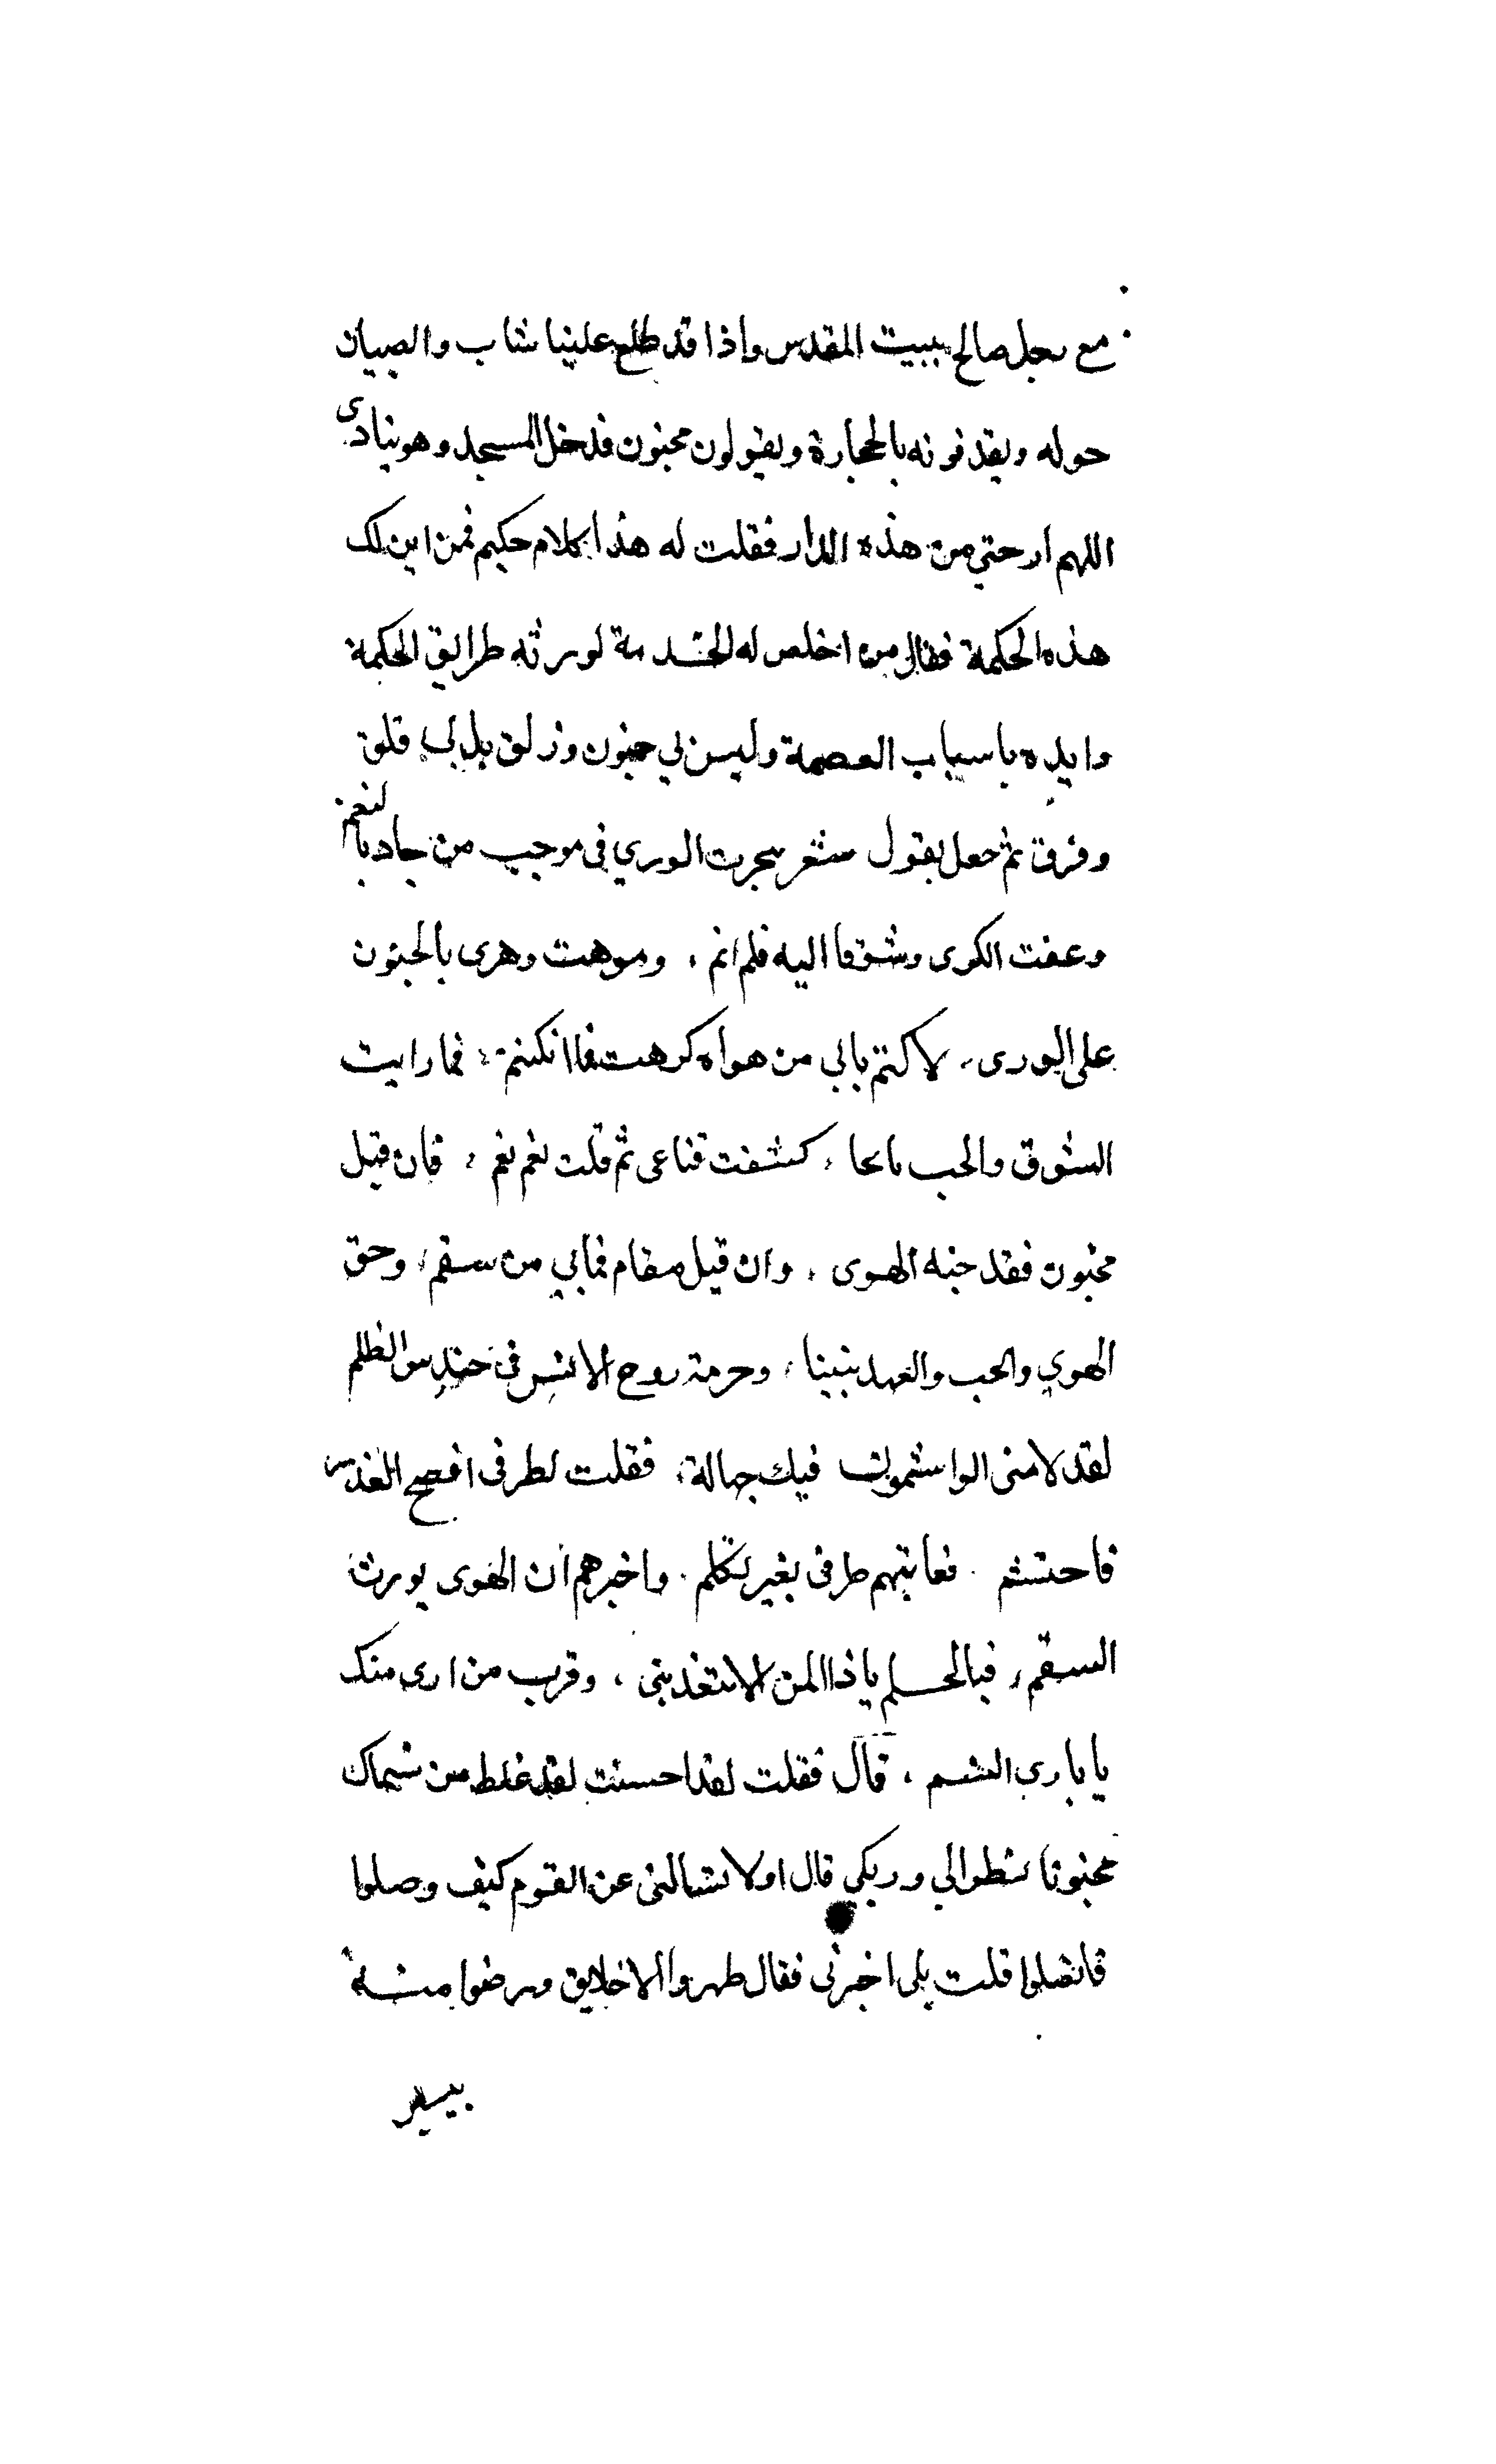 مع رجل صالح ببيت المقدس واذا قد طلع علينا شاب والصبيان
حوله ويقذفونه بالحجارة ويقولون مجنون فدخل المسجد وهو ينادى
اللهم ارحني من هذه الدار فقلت له هذا كلام حكيم فمن اين لك
هذه الحكمة فقال من اخلص له الخدمة لورثه طرايق الحكمة
وايده باسباب العصمة وليس لي جنون وزلق بل لي قلق
وفرق ثم جعل يقول شعر هجرت الوري في موجب من جاد بالنعم
وعفت الكرى وشوقا اليه فلم انم ، وموهت دهرى بالجنون
على الورى، لاكتم بالي من هواه كرهت فما انكتم ، فما رايت
الشوق والحب بايحا ، كشفت قناعى ثم قلت نعم نعم ، فان قيل
مجنون فقد جننه الهوى ، وان قيل مقام فمابي من سقم، وحق
الهوي والحب والعهد بيننا، وحرمة روح الانس في حندس الظلم
لقد لامنى الواشمون فيك جهالة، فقلت لطرفى افصح العذر
فاحتشم . فعاتبهم طرفى بغير تكلم . واخبرهم ان الهوى يورث
السقم، فبالحلم ياذا المن لا تبعدننى ، وقرب من ارى منك
يا بارى النسم ، قال فقلت لقد احسنت لقد غلط من سماك
مجنونا فنظر الي وبكي قال اولا تسالنى عن القوم كيف وصلوا
فاتصلوا قلت بلى اخبرنى فقال طهروا الاخلايق ورضوا منه
بيسير